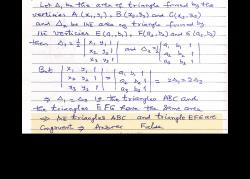 Let Δ₁ be the area of triangle formed by the
vertices A (x₁,y₁), B (x₂,y₂) and C(x₃,y₃)
and Δ₂ be the area of triangle formed by
the vertices E(a₁,b₁), F(a₂,b₂) and G(a₃,b₃)
then Δ₁ = ½ | x₁ y₁ 1 | and Δ₂ = ½ | a₁ b₁ 1 |
| x₂ y₂ 1 | | a₂ b₂ 1 |
| x₃ y₃ 1 | | a₃ b₃ 1 |
But | x₁ y₁ 1 | = | a₁ b₁ 1 |
| x₂ y₂ 1 | | a₂ b₂ 1 | ⇒ 2Δ₁ = 2Δ₂
| x₃ y₃ 1 | | a₃ b₃ 1 |
⇒ Δ₁ = Δ₂ the triangles ABC and
the triangles EFG have the same area
⇒ triangles ABC and triangle EFG are
Congruent ⇒ Answer False